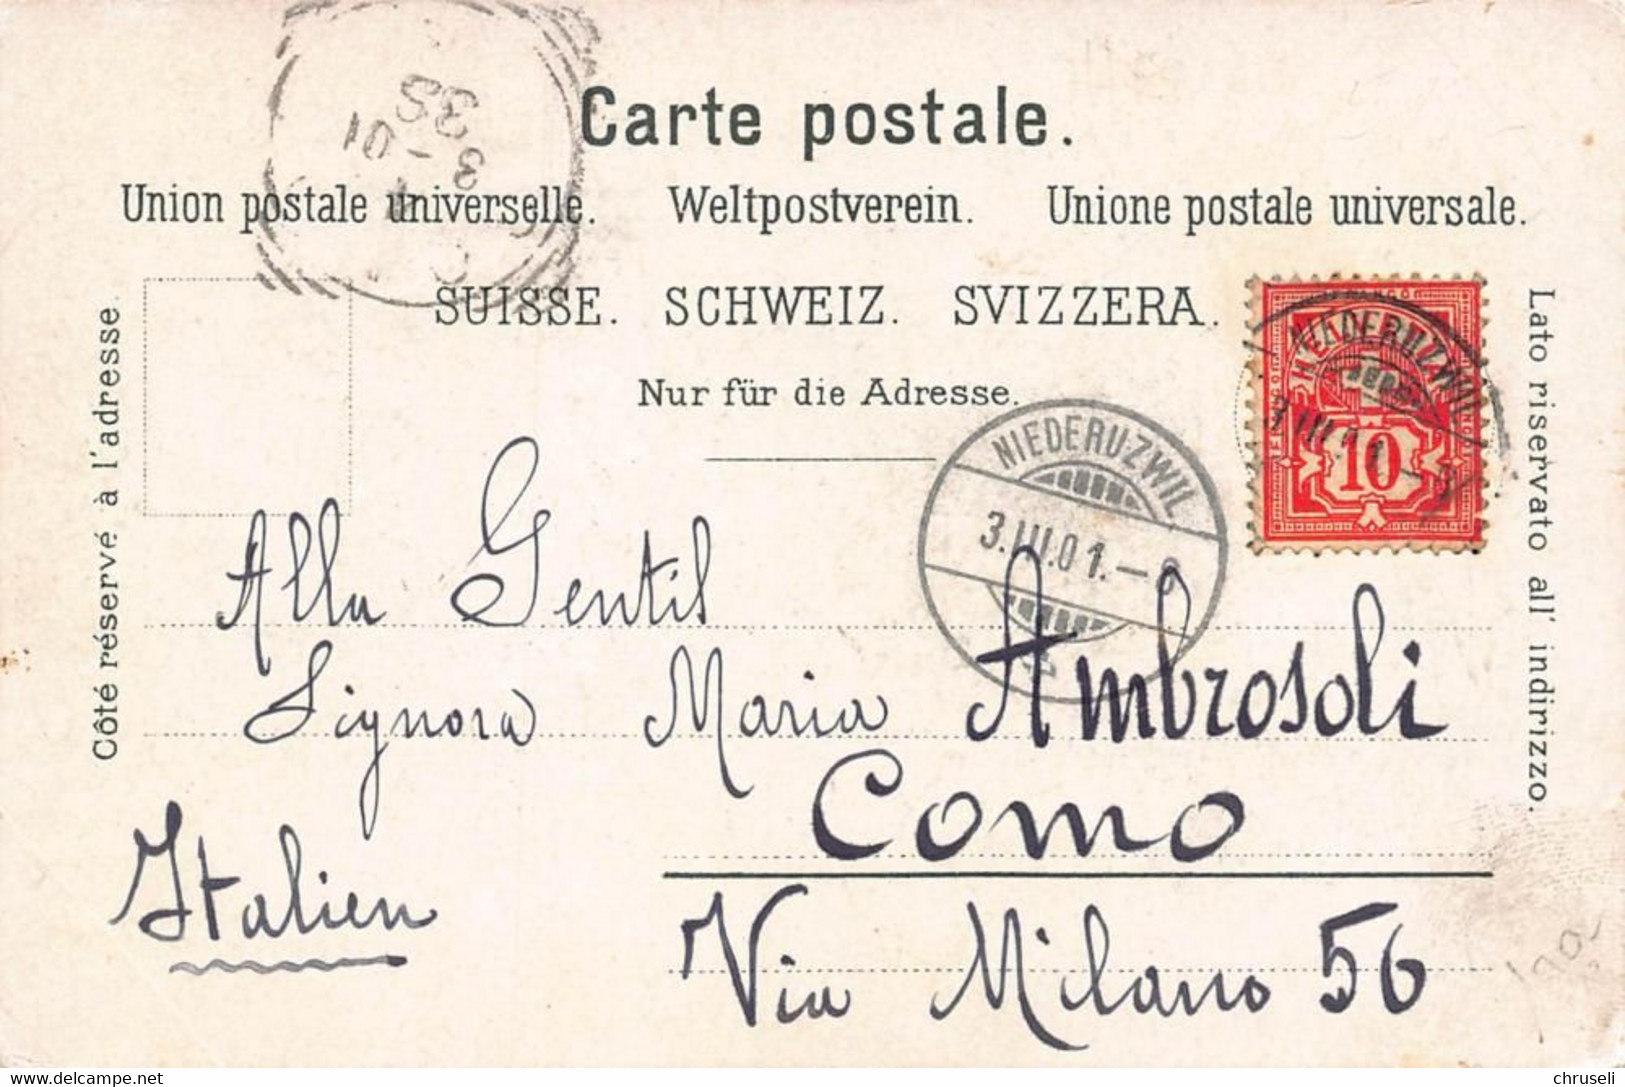 Carte postale.
Union postale universelle. Weltpostverein. Unione postale universale.
SUISSE. SCHWEIZ. SVIZZERA.
Nur für die Adresse.
Côté réservé à l'adresse.
Lato riservato all' indirizzo.
3 - 01
3S
NIEDERUZWIL
3.III.01.-8
HELVETIA
10
NIEDERUZWIL
3.III.01.-8
Alla Gentil
Signora Maria Ambrosoli
Como
Italien
Via Milano 56
Delcampe.net
chruseli